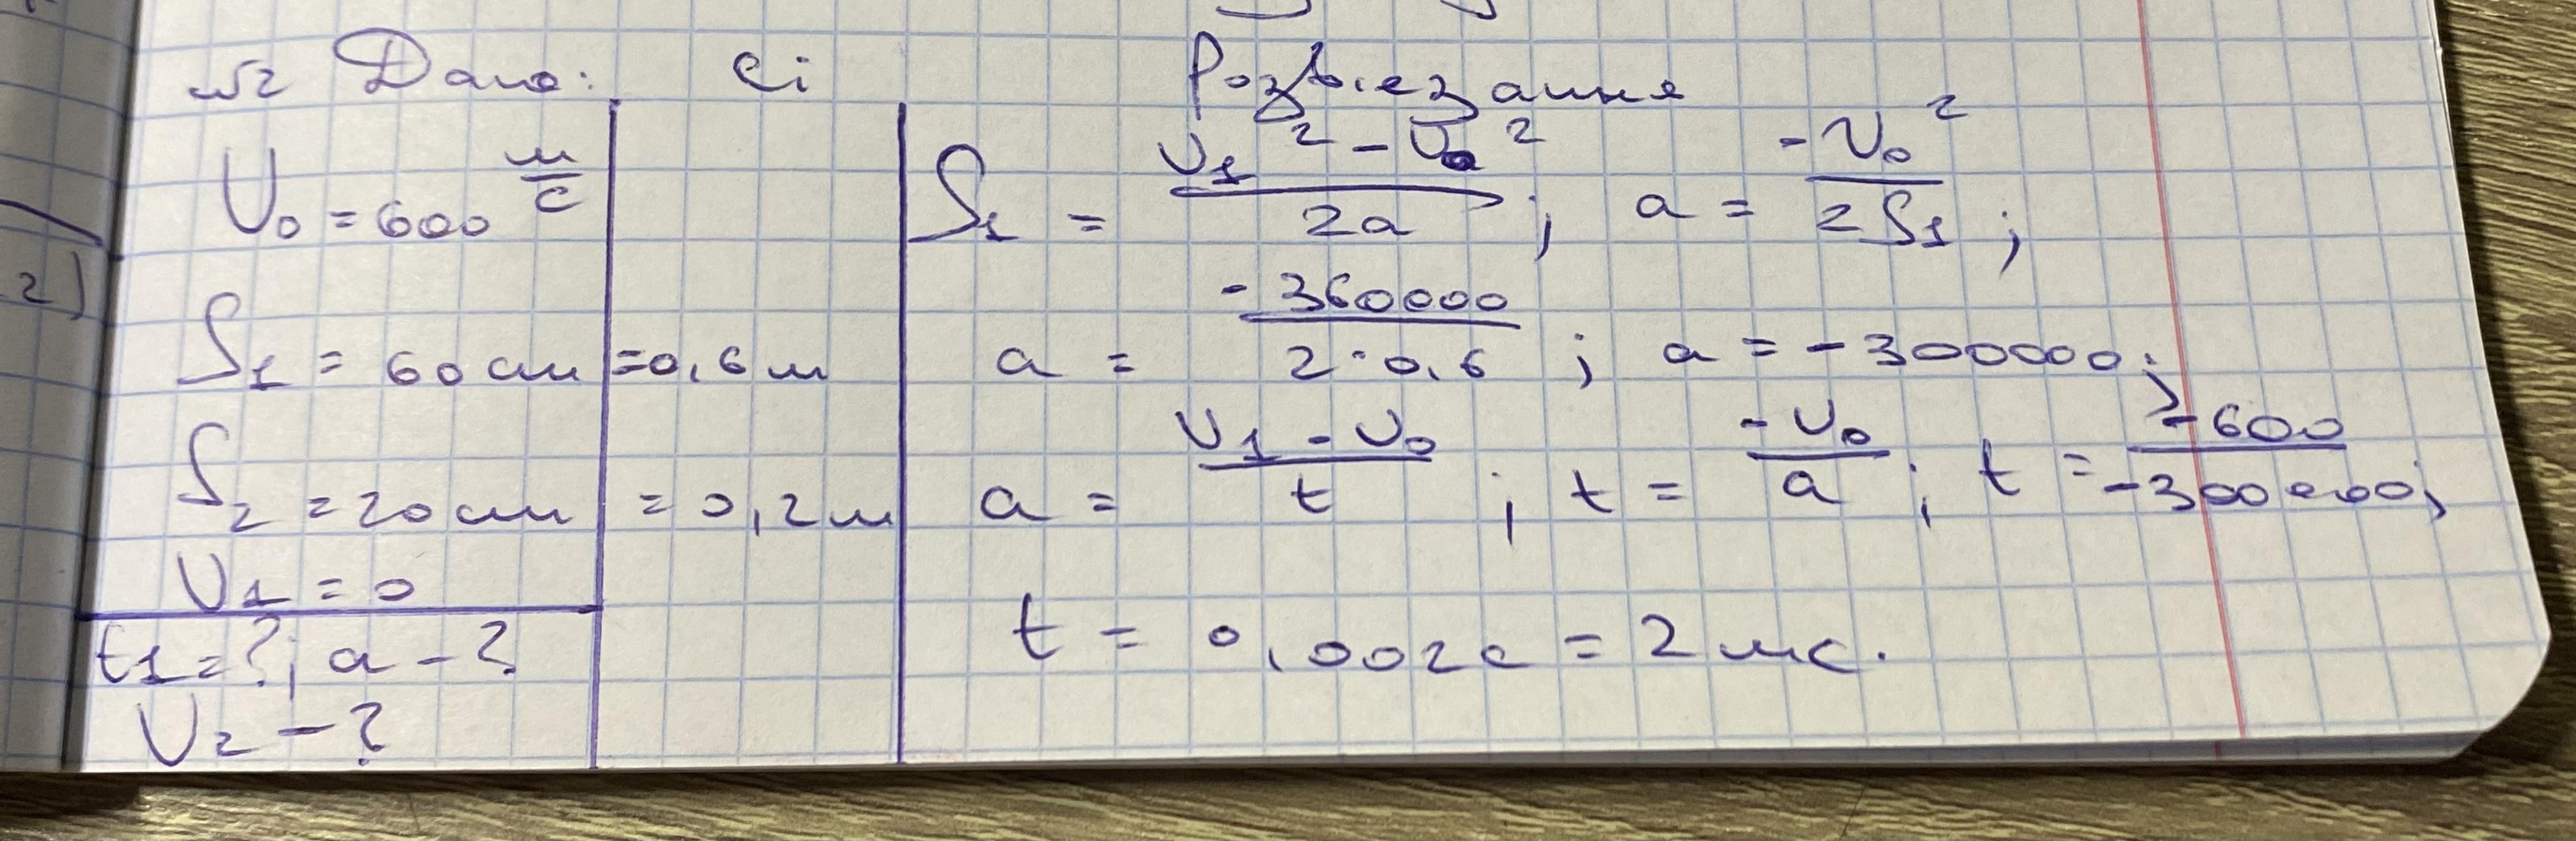 №2 Дано: Сі Розв'язання
U₀ = 600 м/с
S₁ = 60 см = 0,6 м
S₂ = 20 см = 0,2 м
U₁ = 0
t₁ = ?; a - ?
U₂ - ?
S₁ = (U₁² - U₀²)/2a ; a = -U₀²/2S₁ ;
a = -360000/2·0,6 ; a = -300000;
a = (U₁ - U₀)/t ; t = -U₀/a ; t = -600/-300000;
t = 0,002с = 2 мс.
2)